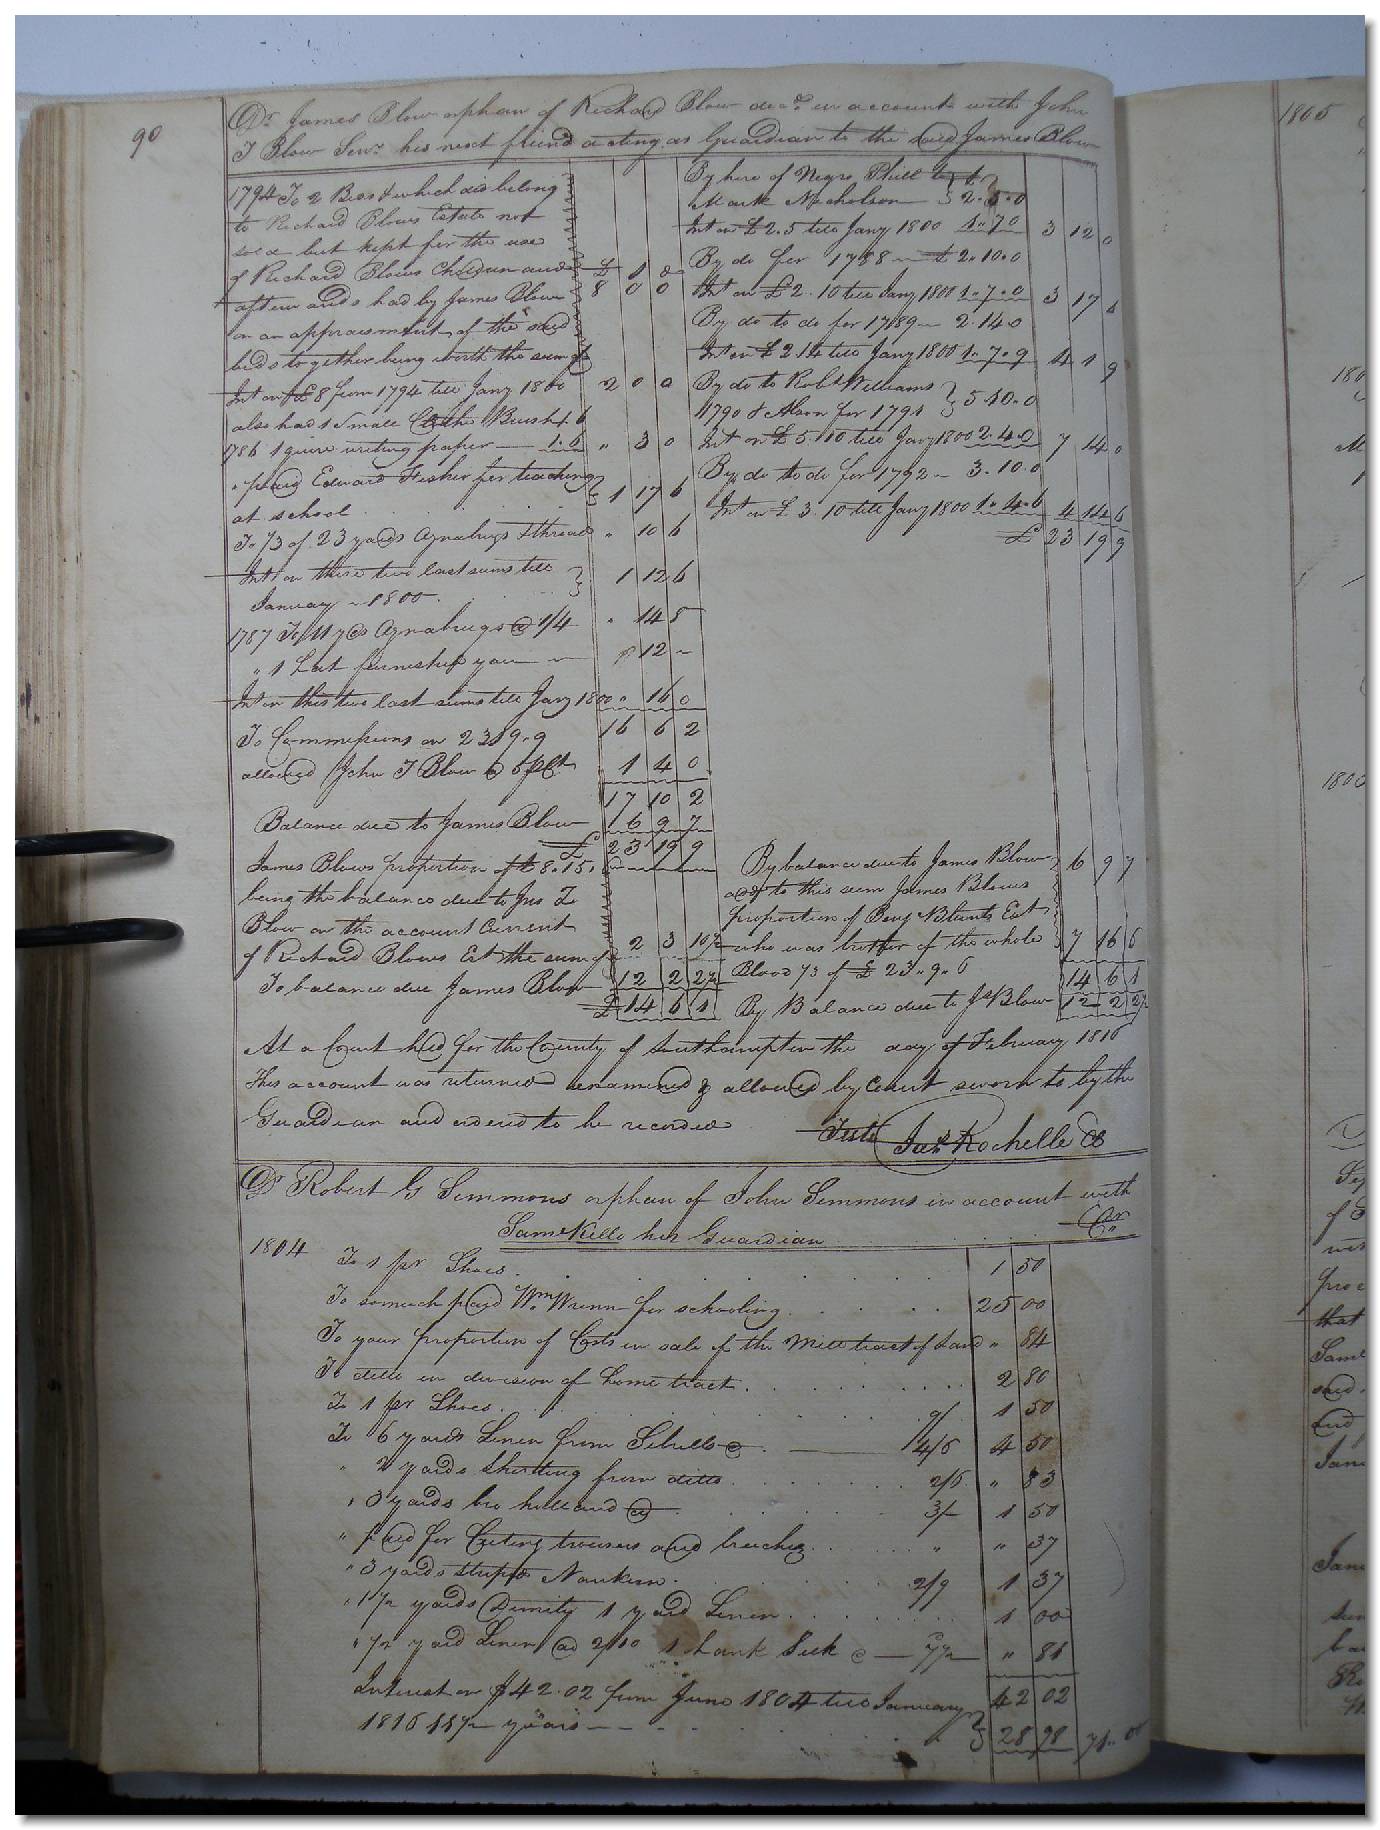 90
Dr. James Blow orphan of Richard Blow decd in account with John
T Blow Senr. his next friend acting as Guardian to the said James Blow
1794 To 2 Beds & which did belong
to Richard Blows Estate not
sold but kept for the use
of Richard Blows Children and £ 1 0
afterwards had by James Blow 8 0 0
on an appraisment of the said
beds together being worth the sum of
Int on £8 from 1794 till Jany 1800 2 0 0
also had 1 small Clothe Brush 1.6
1786 1 quire writing paper — 1.6 " 3 0
" paid Edward Fisher for teaching } 1 17 6
at school
To 1/3 of 23 yards Oznabrugs & thread " 10 6
Int on these two last sums till } 1 12 6
January - 1800.
1787 To 11 yds Oznabrugs @ 1/4 " 14 8
" 1 Hat furnished you — " 12 -
Int on this two last sums till Jany 1800 " 16 0
16 6 2
To Commissions on 23.19.9
allowed John T Blow @ 5 pCt 1 4 0
17 10 2
Balance due to James Blow 6 9 7
£ 23 19 9
James Blows proportion of £8.15.
being the balance due to Jno T
Blow on the account Current
of Richard Blows Est the sum of 2 3 10 1/2
To balance due James Blow 12 2 2 1/2
£ 14 6 1
By hire of Negro Phill to
Mark Nicholson } 2.5.0
Int on £2.5 till Jany 1800 1.7.0 3 12 0
By do for 1788 — £ 2.10.0
Int on £2.10 till Jany 1800 1.7.0 3 17
By do to do for 1789 — 2.14.0
Int on £2 14 till Jany 1800 1.7.9 4 1 9
By do to Robt Williams
1790 & Also for 1791 } 5.10.0
Int on £5.10 till Jany 1800 2.4.0 7 14 0
By do to do for 1792 — 3.10.0
Int on £ 3.10 till Jany 1800 1.4.6 4 14 6
£ 23 19 9
By balance due to James Blow 6 9 7
add to this sum James Blows
proportion of Benj Blunts Est
who was brother of the whole 7 16 6
Blood 1/3 of £ 23.9.6 14 6 1
By Balance due to Js Blow 12 2 2 1/2
At a Court held for the County of Southampton the day of February 1816
This account was returned examined & allowed by Court sworn to by the
Guardian and ordered to be recorded
Teste Jas Rochelle CC
Dr Robert G Simmons orphan of John Simmons in account with
Saml Kello his Guardian Cr.
1804 To 1 pr Shoes 1 50
To so much paid Wm. Wrenn for schooling 25 00
To your proportion of Costs in sale of the Mill tract of Land " 84
To ditto in division of home tract 2 80
To 1 pr Shoes 9/ 1 50
To 6 yards Linen from Sebrells @ 4/6 4 50
" 2 yards Shirting from ditto 2/6 " 83
" 3 yards bro holland @ 3/- 1 50
" paid for Cuting trousers and breeches " " 37
" 3 yards stript Nankeen 2/9 1 37
" 1 1/2 yards Dimity 1 yard Linen 1 00
" 1/2 yard Linen @ 2/10 1 hank Silk @ — 7 1/2 " 81
42 02
Interest on $42.02 from June 1804 till January
1816 11 1/2 years } 28 98 71.00
1805
1800